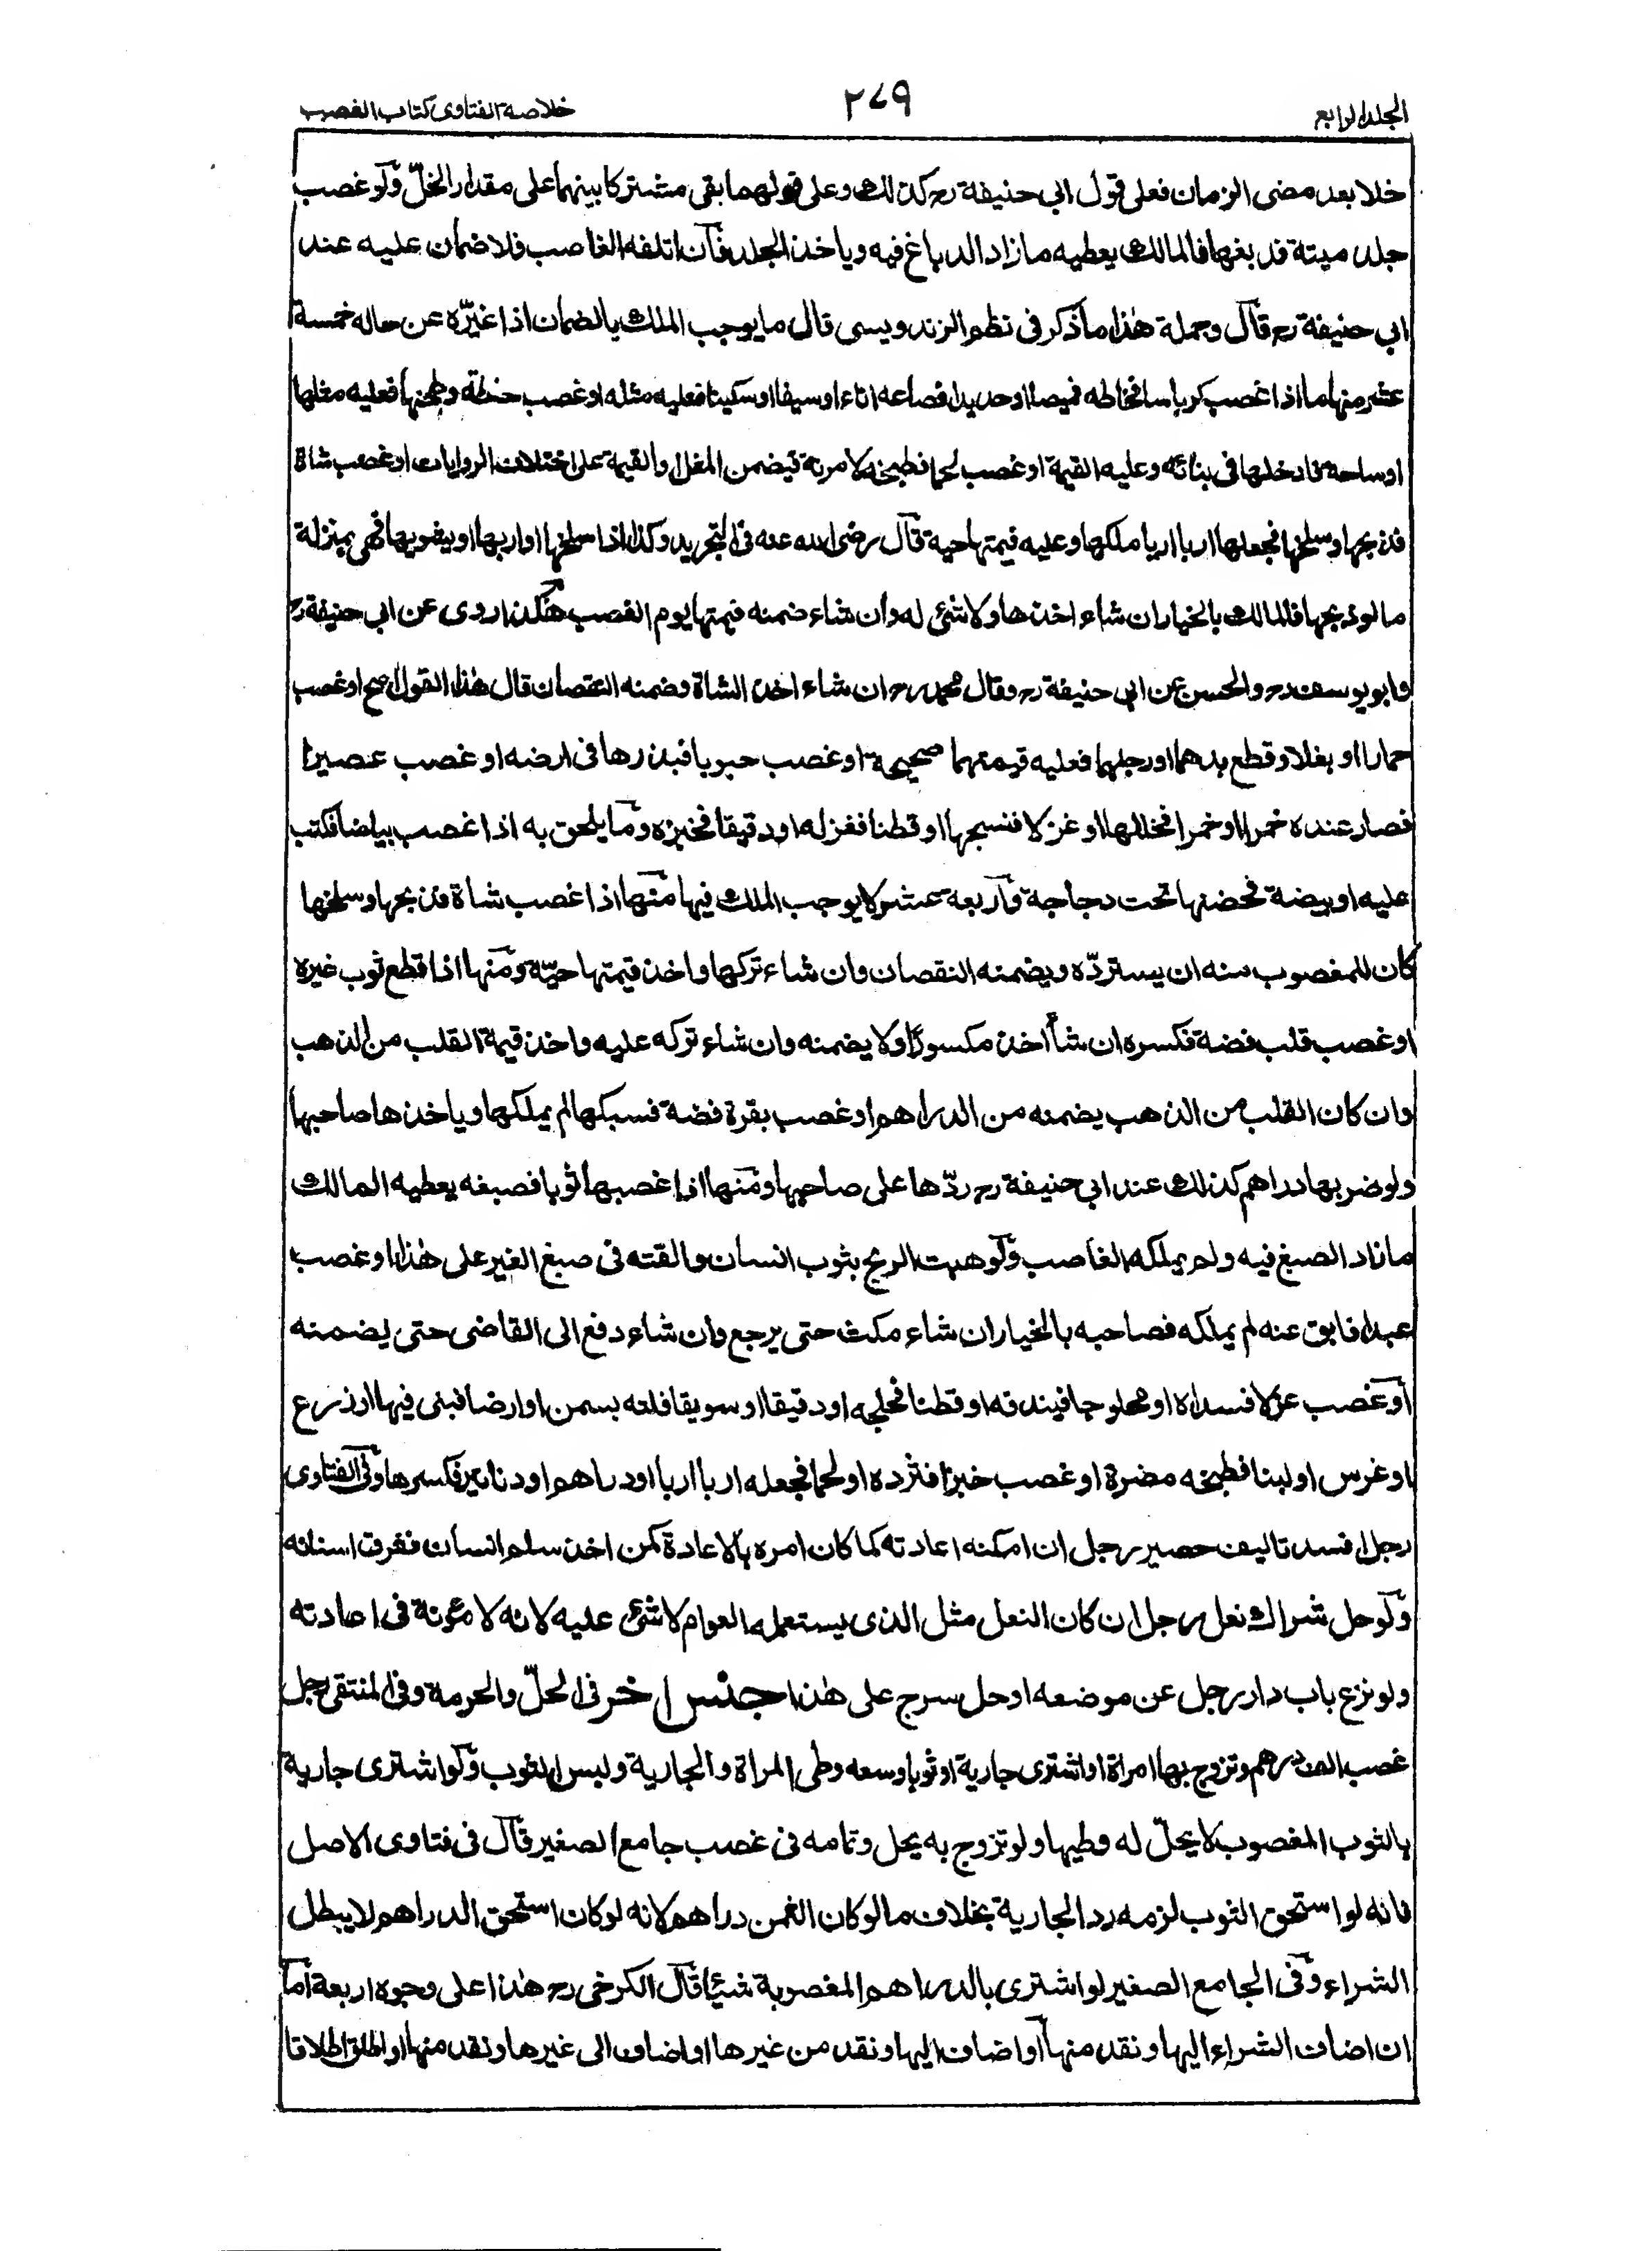 الجلد الرابع
٢٧٩
خلاصة الفتاوى كتاب الغصب
خلا بعد مضى الزمان فعلى قول ابي حنيفة رح كذلك وعلى قولهما بقى مشتركا بينهما على مقدار الخلّ ولو غصب
جلد ميتة فدبغها فالمالك يعطيه ما زاد الدباغ فيه وياخذ الجلد فان اتلفه الغاصب فلا ضمان عليه عند
ابي حنيفة رح قال وجملة هذا ما ذكر فى نظم الزندويسى قال ما يوجب الملك بالضمان اذا غيّره عن حاله خمسة
عشر منها ما اذا غصب كرباسا فخاطه قميصا او حديدا فصاعه اناء او سيفا او سكينا فعليه مثله او غصب حنطة وطحنها فعليه مثلها
او ساحة فادخلها فى بنائه وعليه القيمة او غصب لحما فطبخه بالامرقة فيضمن المغل والقيمة على اختلاف الروايات او غصب شاة
فذبحها وسلخها فجعلها اربا اربا ملكها وعليه قيمتها حية قال رضى الله عنه فى التجريد وكذا اذا سلخها او اربها او يشويها فهى بمنزلة
ما لو ذبحها فللمالك بالخيار ان شاء اخذها ولا شئ له وان شاء ضمنه قيمتها يوم الغصب هكذا روى عن ابي حنيفة رح
وابو يوسف رح والحسن عن ابي حنيفة رح وقال محمد رح ان شاء اخذ الشاة وضمنه النقصان قال هذا القول اصح او غصب
حمارا او بغلا وقطع يدهما او رجلهما فعليه قيمتهما صحيحة او غصب حبوبا فبذرها فى ارضه او غصب عصيرا
فصار عنده خمرا او خمرا فخللها او غزلا فنسجها او قطنا فغزله او دقيقا فخبزه وما يلحق به اذا غصب بياضا فكتب
عليه او بيضة فحضنها تحت دجاجة واربعة عشر لا يوجب الملك فيها منها اذا غصب شاة فذبحها وسلخها
كان للمغصوب منه ان يستردّه ويضمنه النقصان وان شاء تركها واخذ قيمتها حيّة ومنها اذا قطع ثوب غيره
او غصب قلب فضة فكسره ان شأ اخذ مكسورًا ولا يضمنه وان شاء تركه عليه واخذ قيمة القلب من الذهب
وان كان القلب من الذهب يضمنه من الدراهم او غصب بقرة فضة فسبكها لم يملكها وياخذها صاحبها
ولو ضربها دراهم كذلك عند ابي حنيفة رح ردّها على صاحبها ومنها اذا غصبها ثوبا فصبغه يعطيه المالك
ما زاد الصبغ فيه ولم يملكه الغاصب ولو هبت الريح بثوب انسان والقته فى صبغ الغير على هذا او غصب
عبدا فابق عنه لم يملكه فصاحبه بالخيار ان شاء مكث حتى يرجع وان شاء دفع الى القاضى حتى يضمنه
او غصب غزلا فسداه او محلوجا فيندفه او قطنا فحلجه او دقيقا او سويقا فلته بسمن او ارضا فبنى فيها او زرع
او غرس او لبنا فطبخه مضرة او غصب خبزا فثرده او لحما فجعله اربا اربا او دراهم او دنانير فكسرها وفى الفتاوى
رجل افسد تاليف حصير رجل ان امكنه اعادته كما كان امره بالاعادة كمن اخذ سلم انسان ففرق اسنانه
ولو حل شراك نعل رجل ان كان النعل مثل الذى يستعمله العوام لا شئ عليه لانه لا مؤنة فى اعادته
ولو نزع باب دار رجل عن موضعه او حل سرج على هذا جنس اخر فى الحلّ والحرمة وفى المنتقى رجل
غصب الف درهم وتزوج بها امراة او اشترى جارية او ثوبا وسعه وطى المراة والجارية ولبس الثوب ولو اشترى جارية
بالثوب المغصوب لا يحلّ له وطيها ولو تزوج به يحل وتمامه فى غصب جامع الصغير قال فى فتاوى الاصل
فانه لو استحق الثوب لزمه رد الجارية بخلاف ما لو كان الثمن دراهم لانه لو كان استحق الدراهم لا يبطل
الشراء وفى الجامع الصغير لو اشترى بالدراهم المغصوبة شيئا قال الكرخى رح هذا على وجوه اربعة اما
ان اضاف الشراء اليها ونقد منها او اضاف اليها ونقد من غيرها او اضاف الى غيرها ونقد منها او اطلق اطلاقا